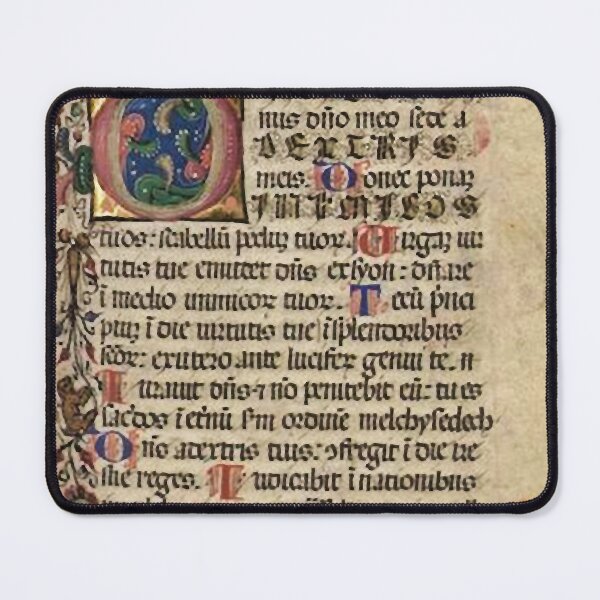 nus dño meo sede a
DEXTRIS
meis. Donec ponaꝫ
INIMICOS
tuos: scabellū pedūꝫ tuoꝝ. Virgaꝫ uir
tutis tue emittet dñs exsyon: dñare
ī medio inimicoꝝ tuoꝝ. Tecū pⁱnci
piuꝫ ī die uirtutis tue īsplendoribus
scōꝝ: exutero ante lucifeꝝ genui te. n
Iurauit dñs ⁊ nō penitebit eū: tu es
sac̄dos ī et̄nū s̄m ordinē melchysedech
Dñs adextris tuis: ꝯfregit ī die ire
sue reges. Iudicabit ī nationibus